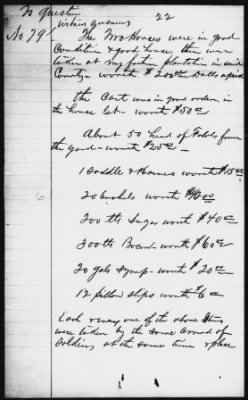 To Question 22
witness answers
No 79 The two Horses were in good
Condition & good horses, they were
taken at my plantation in said
County - worth $200 00
the Cart was in good order, in
the horse lot - worth $50 00
About 50 head of fowls from
the yard - worth $25 00
1 Saddle & Harness worth $15 00
20 bushels worth $40 00
200 lbs Sugar worth $40 00
300 lb Bacon worth $60 00
20 gals Syrup - worth $20 00
12 pillow slips worth $6 00
Each & every one of the above Items
were taken by the same Crowd of
Soldiers at the same time & place